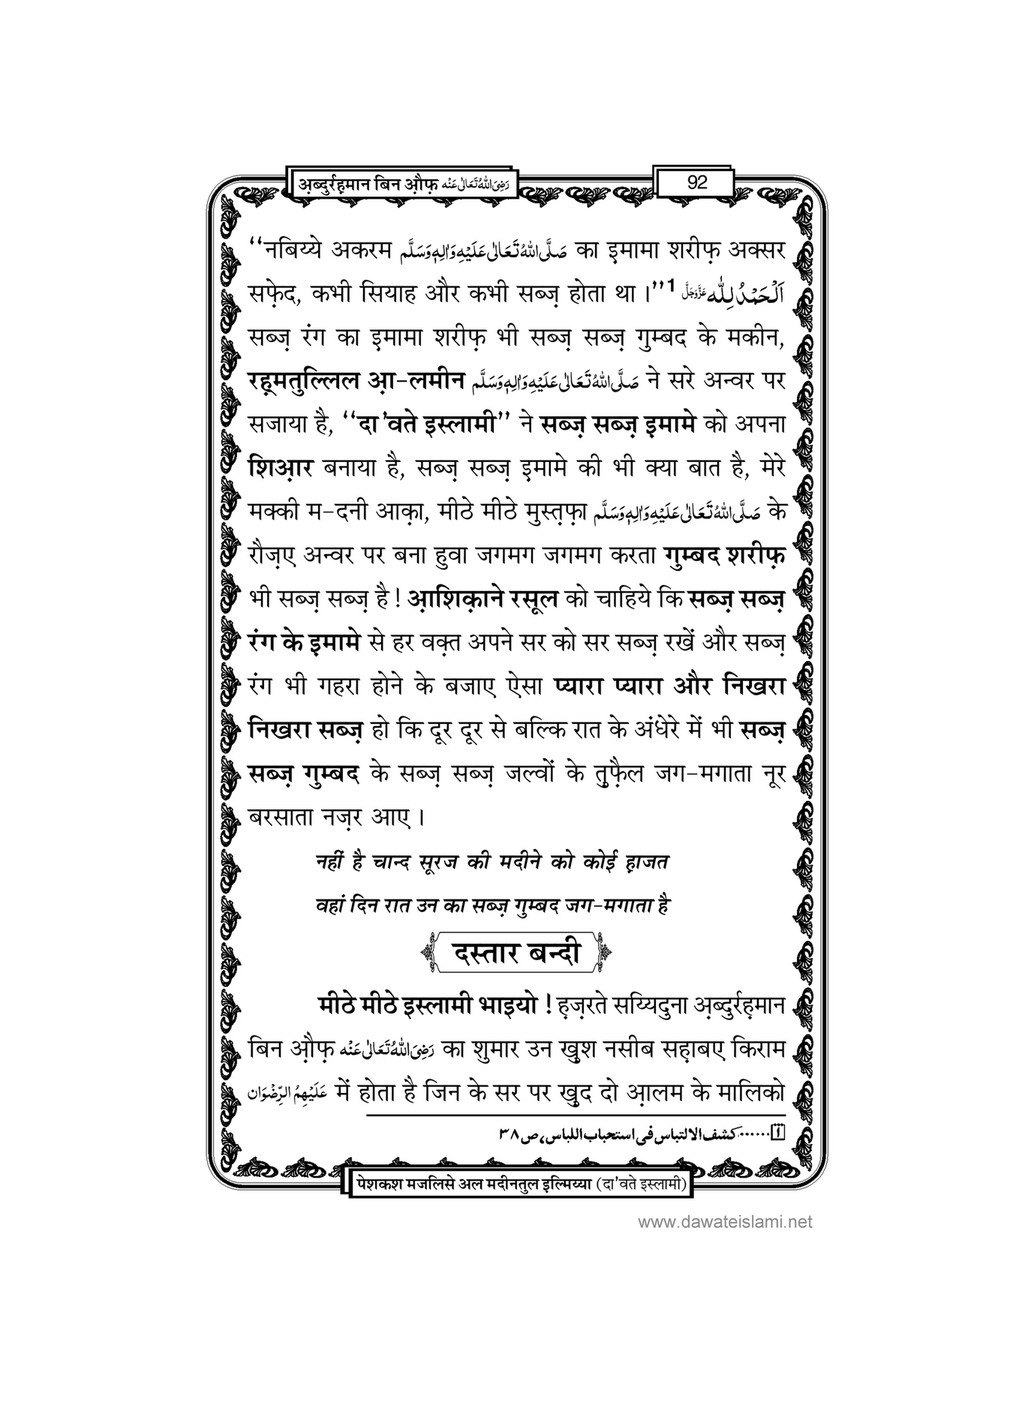 अ़ब्दुर्रह़मान बिन औ़फ़ رَضِیَ اللّٰہُ تَعَالٰی عَنْہ
92
‘‘नबिय्ये अकरम صَلَّی اللّٰہُ تَعَالٰی عَلَیْہِ وَاٰلِہٖ وَسَلَّم का इमामा शरीफ़ अक्सर
सफ़ेद, कभी सियाह और कभी सब्ज़ होता था ।’’1 اَلْحَمْدُ لِلّٰہ عَزَّوَجَلَّ
सब्ज़ रंग का इमामा शरीफ़ भी सब्ज़ सब्ज़ गुम्बद के मकीन,
रह़्मतुल्लिल आ़-लमीन صَلَّی اللّٰہُ تَعَالٰی عَلَیْہِ وَاٰلِہٖ وَسَلَّم ने सरे अन्वर पर
सजाया है, ‘‘दा'वते इस्लामी’’ ने सब्ज़ सब्ज़ इमामे को अपना
शिआ़र बनाया है, सब्ज़ सब्ज़ इमामे की भी क्या बात है, मेरे
मक्की म-दनी आक़ा, मीठे मीठे मुस्त़फ़ा صَلَّی اللّٰہُ تَعَالٰی عَلَیْہِ وَاٰلِہٖ وَسَلَّم के
रौज़ए अन्वर पर बना हुवा जगमग जगमग करता गुम्बद शरीफ़
भी सब्ज़ सब्ज़ है ! आ़शिक़ाने रसूल को चाहिये कि सब्ज़ सब्ज़
रंग के इमामे से हर वक़्त अपने सर को सर सब्ज़ रखें और सब्ज़
रंग भी गहरा होने के बजाए ऐसा प्यारा प्यारा और निखरा
निखरा सब्ज़ हो कि दूर दूर से बल्कि रात के अंधेरे में भी सब्ज़
सब्ज़ गुम्बद के सब्ज़ सब्ज़ जल्वों के तुफ़ैल जग-मगाता नूर
बरसाता नज़र आए ।
नहीं है चान्द सूरज की मदीने को कोई ह़ाजत
वहां दिन रात उन का सब्ज़ गुम्बद जग-मगाता है
दस्तार बन्दी
मीठे मीठे इस्लामी भाइयो ! ह़ज़रते सय्यिदुना अ़ब्दुर्रह़मान
बिन औ़फ़ رَضِیَ اللّٰہُ تَعَالٰی عَنْہ का शुमार उन खुश नसीब सह़ाबए किराम
عَلَیْہِمُ الرِّضْوَان में होता है जिन के सर पर खुद दो आ़लम के मालिको
1......کشف الالتباس فی استحباب اللباس، ص ۳۸
पेशकश मजलिसे अल मदीनतुल इल्मिय्या (दा'वते इस्लामी)
www.dawateislami.net